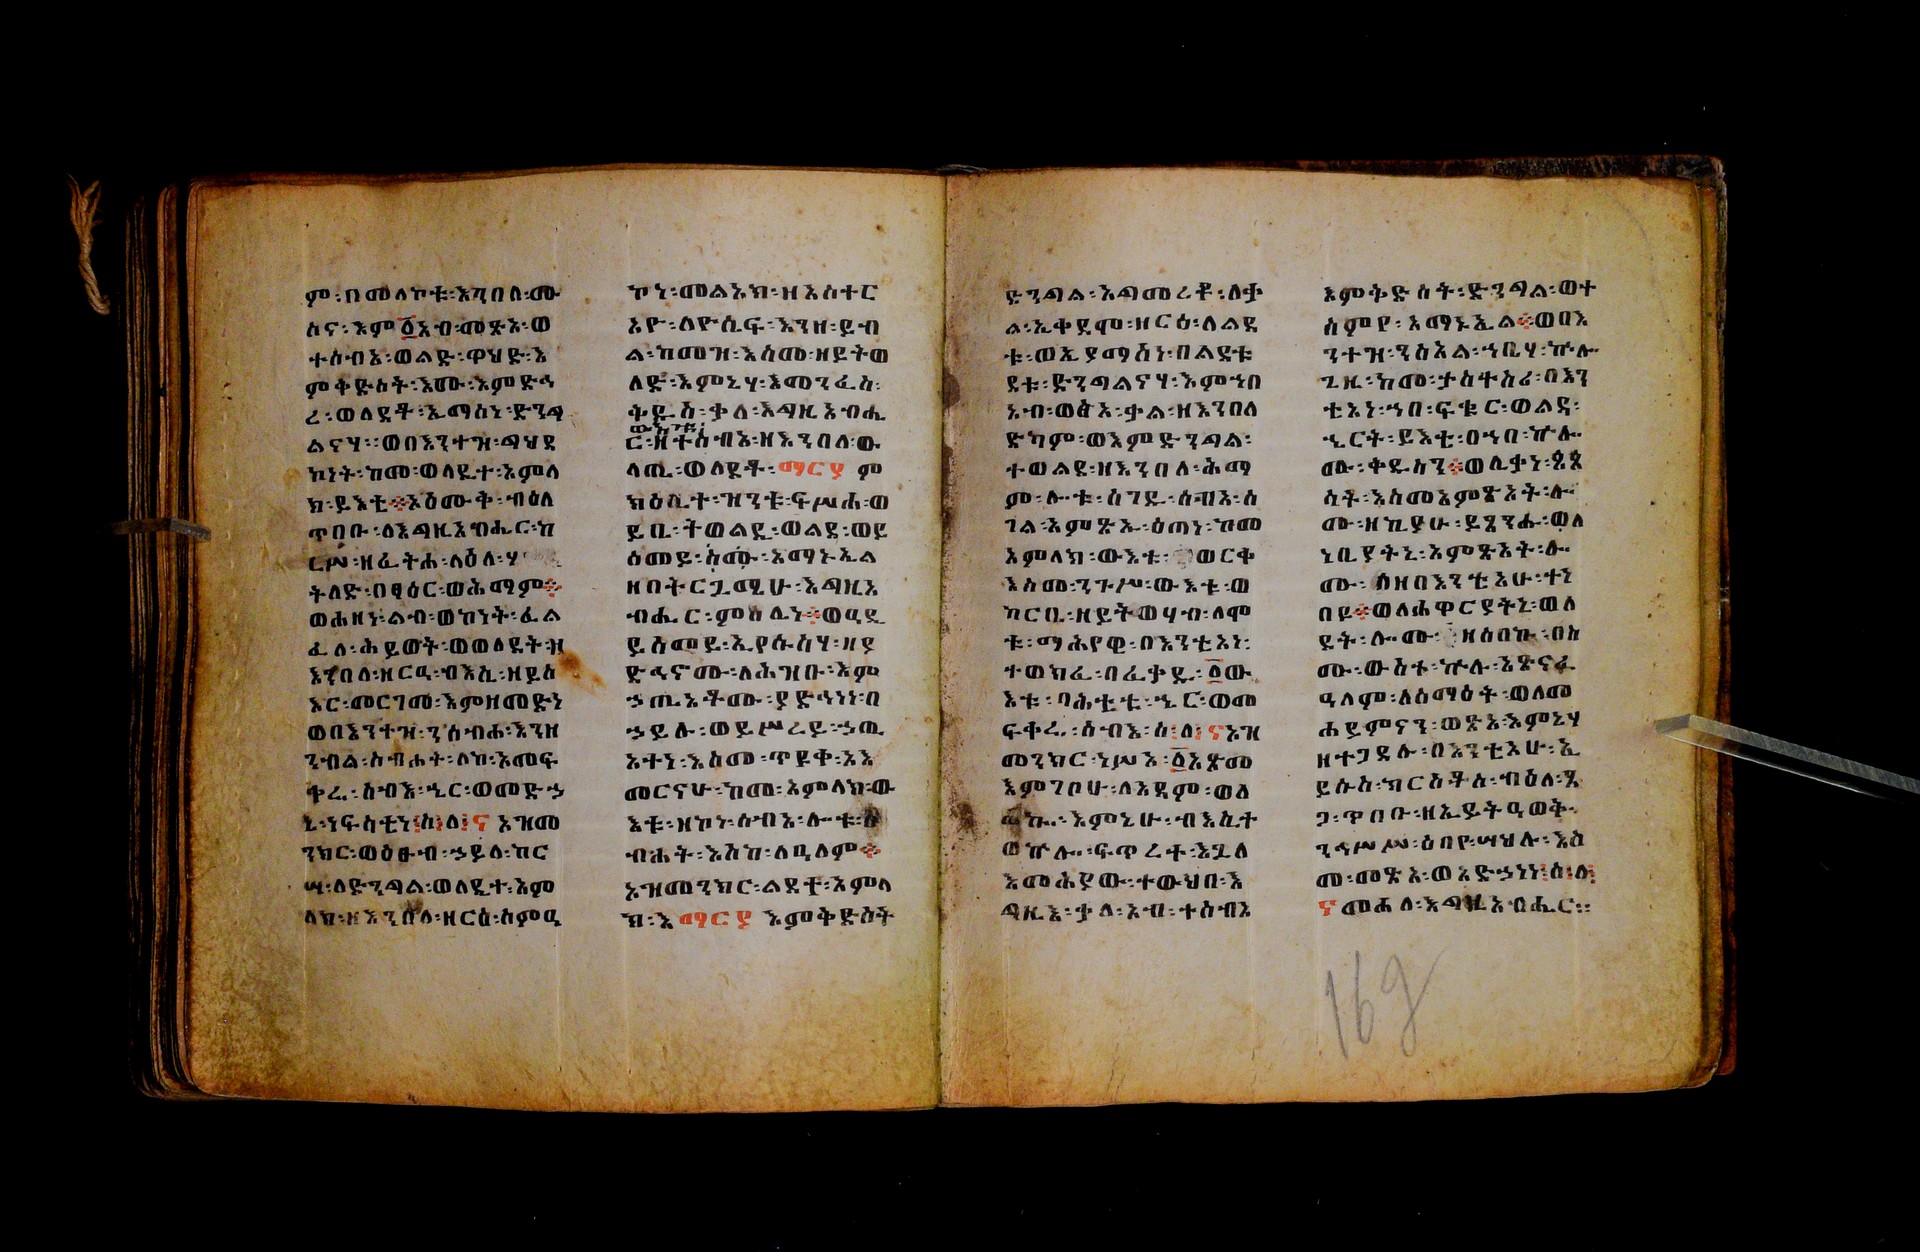 ም፡በመለኮቱ፡እንበለ፡ሙ
ስና፡እም፩አብ፡መጽአ፡ወ
ተሰብአ፡ወልድ፡ዋህድ፡እ
ምቅድስት፡እሙ፡እምድኅ
ረ፡ወለደቶ፡ኢማሰነ፡ድንግ
ልናሃ፡፡ወበእንተዝ፡ግህደ
ኮነት፡ከመ፡ወላዲተ፡እምላ
ክ፡ይእቲ፨እዕሙቅ፡ብዕለ
ጥበቡ፡ለእግዚአብሔር፡ከ
ርሥ፡ዘፈትሐ፡ለዕለ፡ሃ
ትለድ፡በፃዕር፡ወሕማም፨
ወሐዘነ፡ልብ፡ወኮነት፡ፈል
ፈለ፡ሕይወት፡ወወለደት፡ዘ
እንበለ፡ዘርዐ፡ብእሲ፡ዘይስ
እር፡መርገመ፡እምዘመድነ
ወበእንተዝ፡ንሰብሐ፡እንዘ
ንብል፡ስብሐት፡ለከ፡እመፍ
ቀሬ፡ሰብእ፡ኄር፡ወመድኃ
ኒ፡ነፍስቲነ፡ሰ፡ለ፡ና አዝመ
ንክር፡ወዕፁብ፡ኃይለ፡ከር
ሣ፡ለድንግል፡ወላዲተ፡እም
ላክ፡ዘእንበለ፡ዘርዕ፡ስምዐ
ኮነ፡መልአክ፡ዘአስተር
አዮ፡ለዮሴፍ፡እንዘ፡ይብ
ል፡ከመዝ፡እስመ፡ዘይትወ
ለድ፡እምኔሃ፡እመንፈስ፡
ቅዱስ፡ቃለ፡እግዚአብሔ
ውእቱ፡
ር፡ዘተሰብአ፡ዘእንበለ፡ው
ላጤ፡ወለደቶ፡ማርያ ም
ክዕቢተ፡ዝንቱ፡ፍሥሐ፡ወ
ይቤ፡ትወልዲ፡ወልደ፡ወይ
ዕመይ፡ስሙ፡አማኑኤል
ዘበትርጓሜሁ፡እግዚአ
ብሔር፡ምስሌነ፨ወዓዲ
ይሰመይ፡ኢየሱስሃ፡ዘያ
ድኅኖሙ፡ለሕዝቡ፡እም
ኃጢአቶሙ፡ያድኅነነ፡በ
ኃይሉ፡ወይሥረይ፡ኃጢ
አተነ፡እስመ፡ጥዩቀ፡አእ
መርናሁ፡ከመ፡አምላክ፡ው
እቱ፡ዘኮነ፡ሰብአ፡ሎቱ፡ስ
ብሐት፡እስከ፡ለዓለም፨
አዝመንክር፡ልደቱ፡እምላ
ክ፡እ ማርያ እምቅድስት
ድንግል፡አግመረቶ፡ለቃ
ል፡ኢቀደሞ፡ዘርዕ፡ለልደ
ቱ፡ወኢያማሰነ፡በልደቱ
ደቱ፡ድንግልናሃ፡እምኀበ
አብ፡ወፅአ፡ቃል፡ዘእንበለ
ድካም፡ወእምድንግል፡
ተወልደ፡ዘእንበለ፡ሕማ
ም፡ሎቱ፡ሰገዱ፡ሰብአ፡ሰ
ገል፡አምጽኡ፡ዕጣነ፡ከመ
አምላክ፡ውእቱ፡ወርቀ
እስመ፡ንጉሥ፡ውእቱ፡ወ
ከርቤ፡ዘይትወሃብ፡ለሞ
ቱ፡ማሕየዊ፡በእንቲአነ፡
ተወክፈ፡በፈቃዱ፡፩ው
እቱ፡ባሕቲቱ፡ኄር፡ወመ
ፍቀሬ፡ሰብእ፡ሰ፡ለ፡ና አዝ
መንክር፡ነሥአ፡፩አጽመ
እምገቦሁ፡ለአዳም፡ወለ
ሐኰ፡እምኔሁ፡ብእሲት
ወኵሎ፡ፍጥረተ፡እጓለ
እመሕያው፡ተውህበ፡እ
ግዚአ፡ቃለ፡አብ፡ተሰብአ
እምቅድስት፡ድንግል፡ወተ
ሰምየ፡አማኑኤል፨ወበእ
ንተዝ፡ንስአል፡ኀቤሃ፡ኵሎ
ጊዜ፡ከመ፡ታስተስሪ፡በእን
ቲአነ፡ኀበ፡ፍቁር፡ወልዳ፡
ኄርት፡ይእቲ፡በኀበ፡ኵሎ
ሙ፡ቀዱሳን፨ወሊቃነ፡ጳጳ
ሳት፡እስመአምጽአት፡ሎ
ሙ፡ዘኪያሁ፡ይጸንሑ፡ወለ
ነቢያትኒ፡አምጽአት፡ሎ
ሙ፡ለዘበእንቲአሁ፡ተነ
በዩ፨ወለሐዋርያትኒ፡ወለ
ደት፡ሎሙ፡ዘሰበኩ፡በስ
ሙ፡ውስተ፡ኵሉ፡አጽናፈ
ዓለም፡ለሰማዕት፡ወለመ
ሐይምናን፡ወጽአ፡እምኔሃ
ዘተጋደሉ፡በእንቲአሁ፡ኢ
ይሱስ፡ክርስቶስ፡ብዕለ፡ጸ
ጋ፡ጥበቡ፡ዘኢይትዓወቅ
ንኅሥሥ፡ዕበየ፡ሣህሉ፡እስ
መ፡መጽአ፡ወአድኃነነ፡ሰ፡ለ፡
ና መሐለ፡እግዚአብሔር፡፡
169